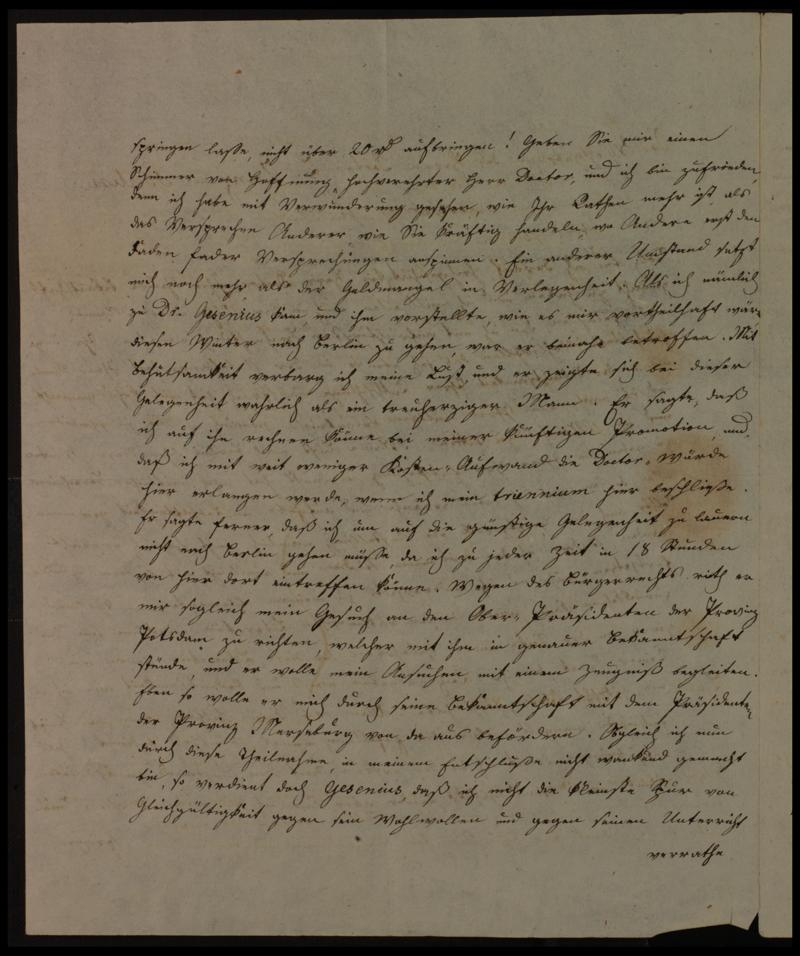 springen lasse, nicht über 20 rth aufbringen! Geben Sie mir einen
Schimmer von Hoffnung, hochverehrter Herr Doctor, und ich bin zufrieden,
denn ich habe mit Verwunderung gesehen, wie Ihr Rathen mehr ist, als
das Versprechen Anderer, wie Sie kräftig handeln, wo Andere erst den
Faden fader Versprechungen anspinnen. Ein anderer Umstand setzt
mich noch mehr, als der Geldmangel in Verlegenheit. Als ich nämlich
zu Dr. Gesenius kam, und ihm vorstellte, wie es mir vortheilhaft wär,
diesen Winter nach Berlin zu gehen, war er beinahe betroffen. Mit
Behutsamkeit verbarg ich meine Lust, und er zeigte sich bei dieser
Gelegenheit wahrlich als ein treuherziger Mann. Er sagte, daß
ich auf ihn rechnen könne bei meiner künftigen Promotion, und
daß ich mit weit weniger Kosten-Aufwand die Doctor-Würde
hier erlangen werde, wenn ich mein triennium hier beschließe.
Er sagte ferner, daß ich um auf die günstige Gelegenheit zu lauern
nicht nach Berlin gehen müsse, da ich zu jeder Zeit in 18 Stunden
von hier dort eintreffen könne. Wegen des Bürgerrechts rieth er
mir sogleich mein Gesuch an den Ober-Präsidenten der Provinz
Potsdam zu richten, welcher mit ihm in genauer Bekanntschaft
stünde, und er wolle mein Ansuchen mit einem Zeugniß begleiten.
Eben so wolle er mich durch seine Bekanntschaft mit dem Präsidenten
der Provinz Merseburg von da aus befördern. Obgleich ich nun
durch diese Theilnahme, in meinem Entschluße nicht wankend gemacht
bin, so verdient doch Gesenius, daß ich nicht die kleinste Spur von
Gleichgültigkeit gegen sein Wohlwollen und gegen seinen Unterricht
verrathe